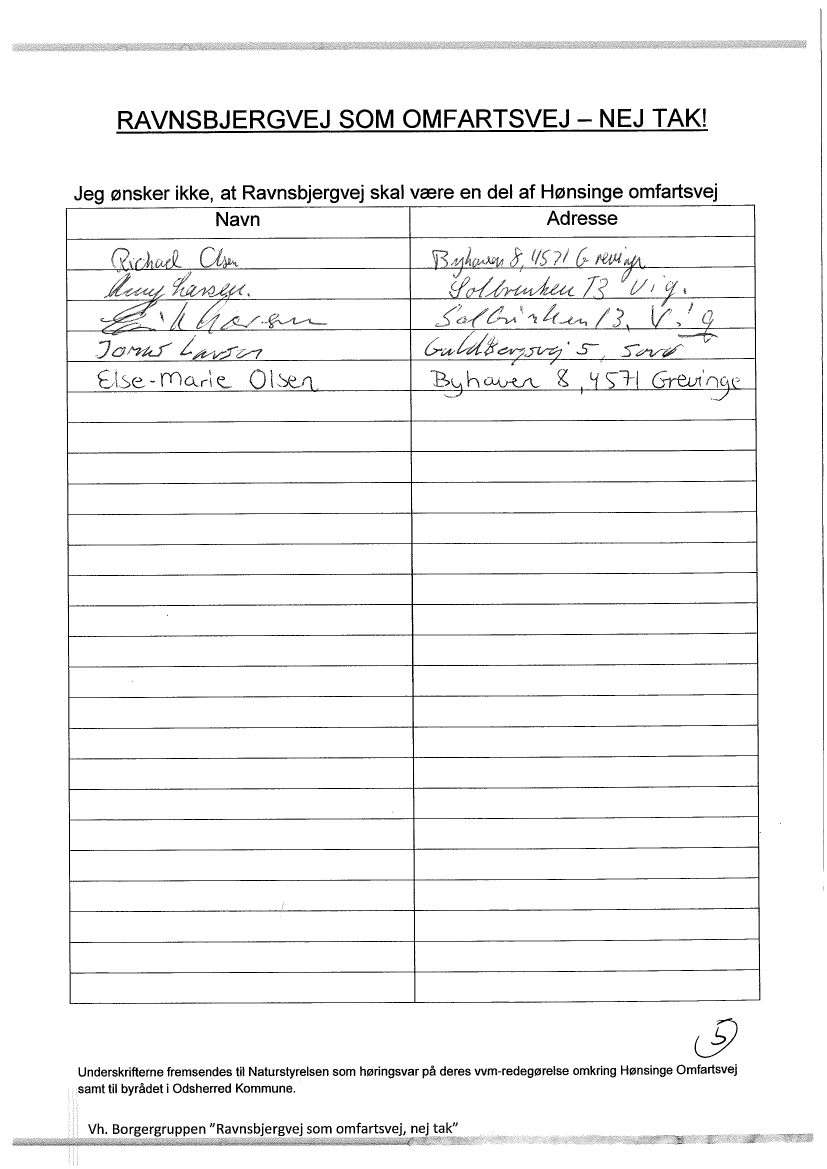 RAVNSBJERGVEJ SOM OMFARTSVEJ – NEJ TAK!
Jeg ønsker ikke, at Ravnsbjergvej skal være en del af Hønsinge omfartsvej
Navn Adresse
Richael Olsen Byhaven 8, 4571 Grevinge
Anny Larsen. Solbrinken 13 Vig.
Erik Larsen Solbrinken 13, Vig
Jonas Larsen Guldbergsvej 5, Sorø
Else-Marie Olsen Byhaven 8, 4571 Grevinge
5
Underskrifterne fremsendes til Naturstyrelsen som høringsvar på deres vvm-redegørelse omkring Hønsinge Omfartsvej
samt til byrådet i Odsherred Kommune.
Vh. Borgergruppen "Ravnsbjergvej som omfartsvej, nej tak"